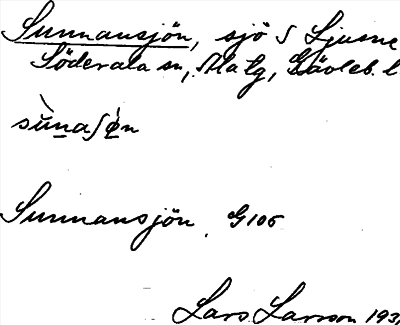 Sunnansjön, sjö S Ljusne
Söderala sn, Ala tg, Gävleb. l
sùnaʃø̀n
Sunnansjön. G106
Lars Larson 193